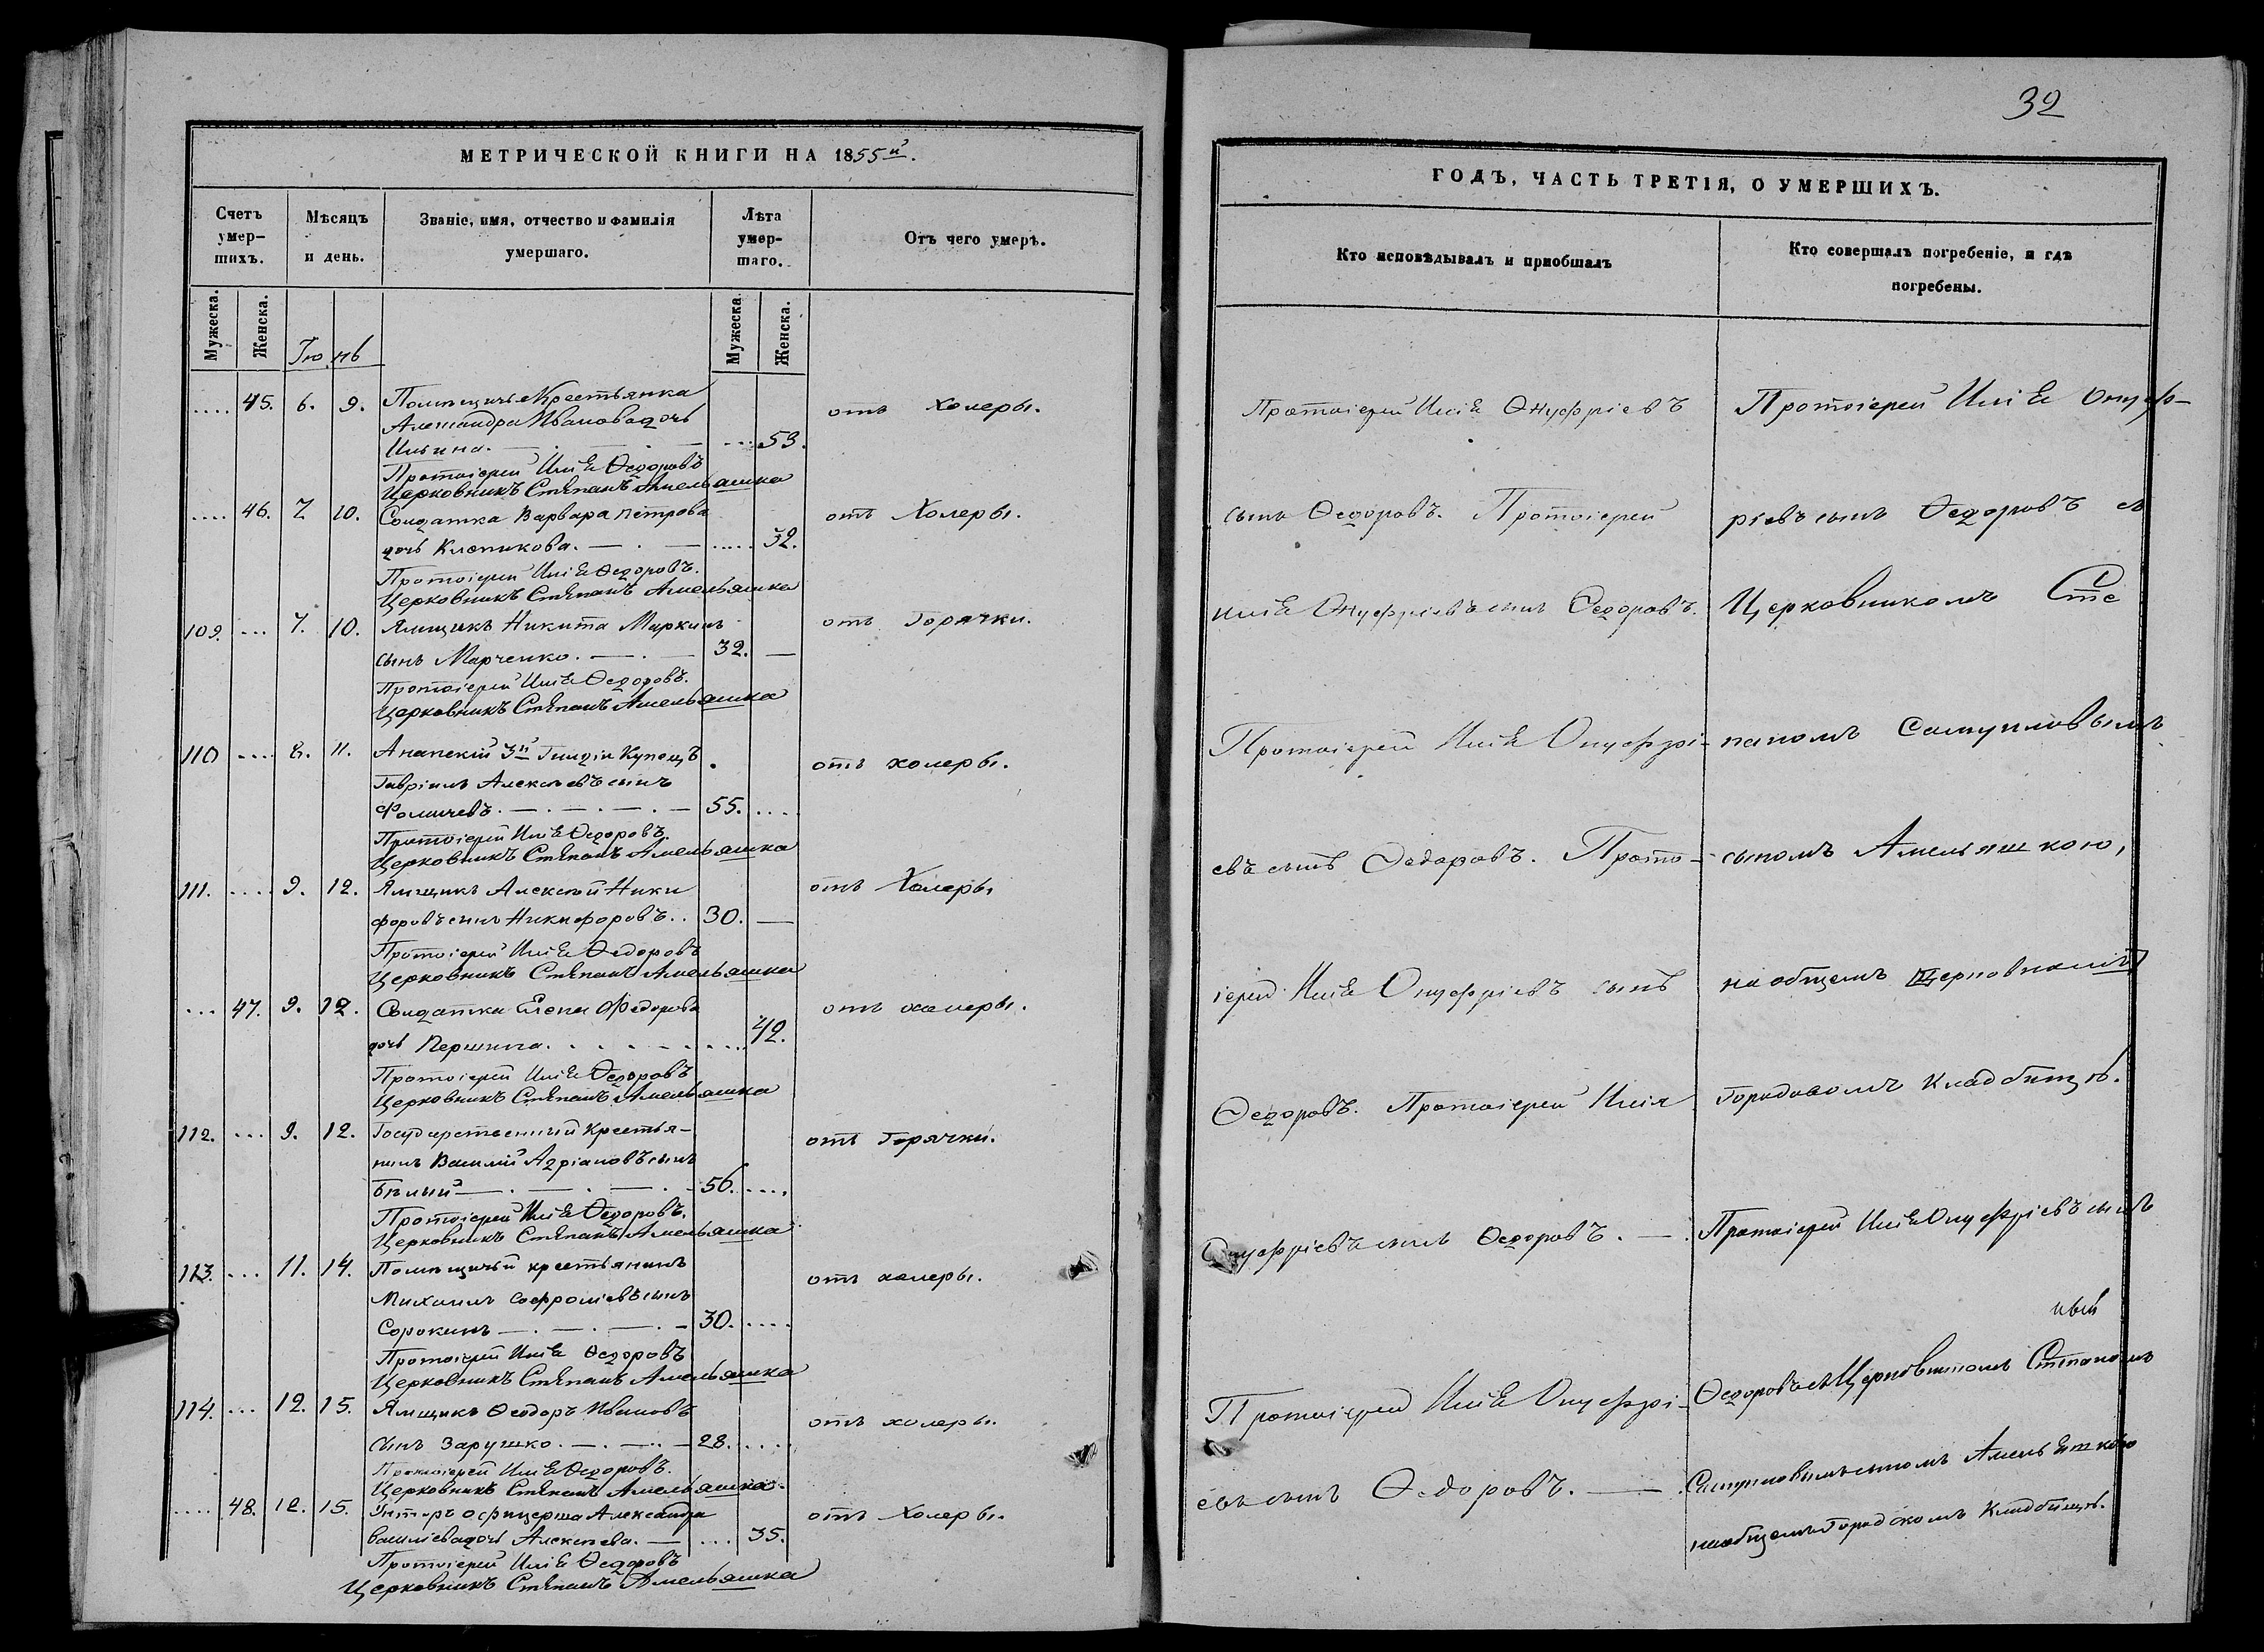 32
МЕТРИЧЕСКОЙ КНИГИ НА 1855й.
Счетъ умер-шихъ.
Мѣсяцъ и день.
Званіе, имя, отчество и фамилія умершаго.
Лѣта умер-шаго.
Отъ чего умеръ.
Мужеска. Женска.
Іюнь
Мужеска. Женска.
.... 45. 6. 9. Помѣщичья Крестьянка отъ холеры.
Александра Иванова дочь
Ильина. — . — .... 53.
Протоіерей Илія Ѳедоровъ
Церковникъ Стѣпанъ Амельяшка
.... 46. 7 10. Солдатка Варвара Петрова отъ Холеры.
дочь Клепикова. — . — ..... 32.
Протоіерей Илія Ѳедоровъ.
Церковникъ Стѣпанъ Амельяшка
109. ... 7. 10. Ямщикъ Никита Маркинъ отъ Горячки.
сынъ Марченко. — . — 32. —
Протоіерей Илія Ѳедоровъ.
Церковникъ Стѣпанъ Амельяшка
110 .... 8. 11. Анапскій 3й Гильдіи Купецъ отъ холеры.
Гавріилъ Алексѣевъ сынъ
Фомичевъ. — . — . — . — 55. ....
Протоіерей Илія Ѳедоровъ.
Церковникъ Стѣпанъ Амельяшка
111. .... 9. 12. Ямщикъ Алексѣй Ники отъ Холеры
форовъ сынъ Никифоровъ.. 30. —
Протоіерей Илія Ѳедоровъ
Церковникъ Стѣпанъ Амельяшка
... 47. 9. 12. Солдатка Елена Федорова отъ холеры.
дочь Першина. . . . . . .... 42.
Протоіерей Илія Ѳедоровъ
Церковникъ Стѣпанъ Амельяшка
112. ... 9. 12. Государственный Крестья- отъ Горячки.
нинъ Василій Адріановъ сынъ
Бѣлый — . — . — . - 56. ....
Протоіерей Илія Ѳедоровъ.
Церковникъ Стѣпанъ Амельяшка
113. ... 11. 14. Помѣщичій крестьянинъ отъ холеры.
Михаилъ Софроніевъ сынъ
Сорокинъ — . — . — . - 30. ....
Протоіерей Илія Ѳедоровъ
Церковникъ Стѣпанъ Амельяшка
114. ... 12. 15. Ямщикъ Ѳеодоръ Ивановъ отъ холеры.
сынъ Зарушко. — . — . — 28. ....
Протоіерей Илія Ѳедоровъ.
Церковникъ Стѣпанъ Амельяшка.
.... 48. 12. 15. Унтеръ офицерша Александра отъ Холеры.
Василіева дочь Алексѣева. — .... 35.
Протоіерей Илія Ѳедоровъ
Церковникъ Стѣпанъ Амельяшка
ГОДЪ, ЧАСТЬ ТРЕТІЯ, О УМЕРШИХЪ.
Кто исповѣдывалъ и приобщалъ
Кто совершалъ погребеніе, и гдѣ погребены.
Протоіерей Илія Онуфріевъ
сынъ Ѳедоровъ. Протоіерей
Илія Онуфріевъ сынъ Ѳедоровъ.
Протоіерей Илія Онуфрі-
евъ сынъ Ѳедоровъ. Прото-
іерей Илія Онуфріевъ сынъ
Ѳедоровъ. Протоіерей Илія
Онуфріевъ сынъ Ѳедоровъ. —
Протоіерей Илія Онуфрі-
евъ сынъ Ѳедоровъ. —
Протоіерей Илія Онуф-
ріевъ сынъ Ѳедоровъ съ
Церковникомъ Сте
паномъ Самуиловымъ
сыномъ Амельяшкою,
на общемъ Церковномъ
Городовомъ Кладбищѣ.
Протоіерей Илія Онуфріевъ сынъ
Ѳедоровъ съ Церковникомъ Степаномъ
Самуиловымъ сыномъ Амельяшкою
на общемъ Городскомъ Кладбищѣ.